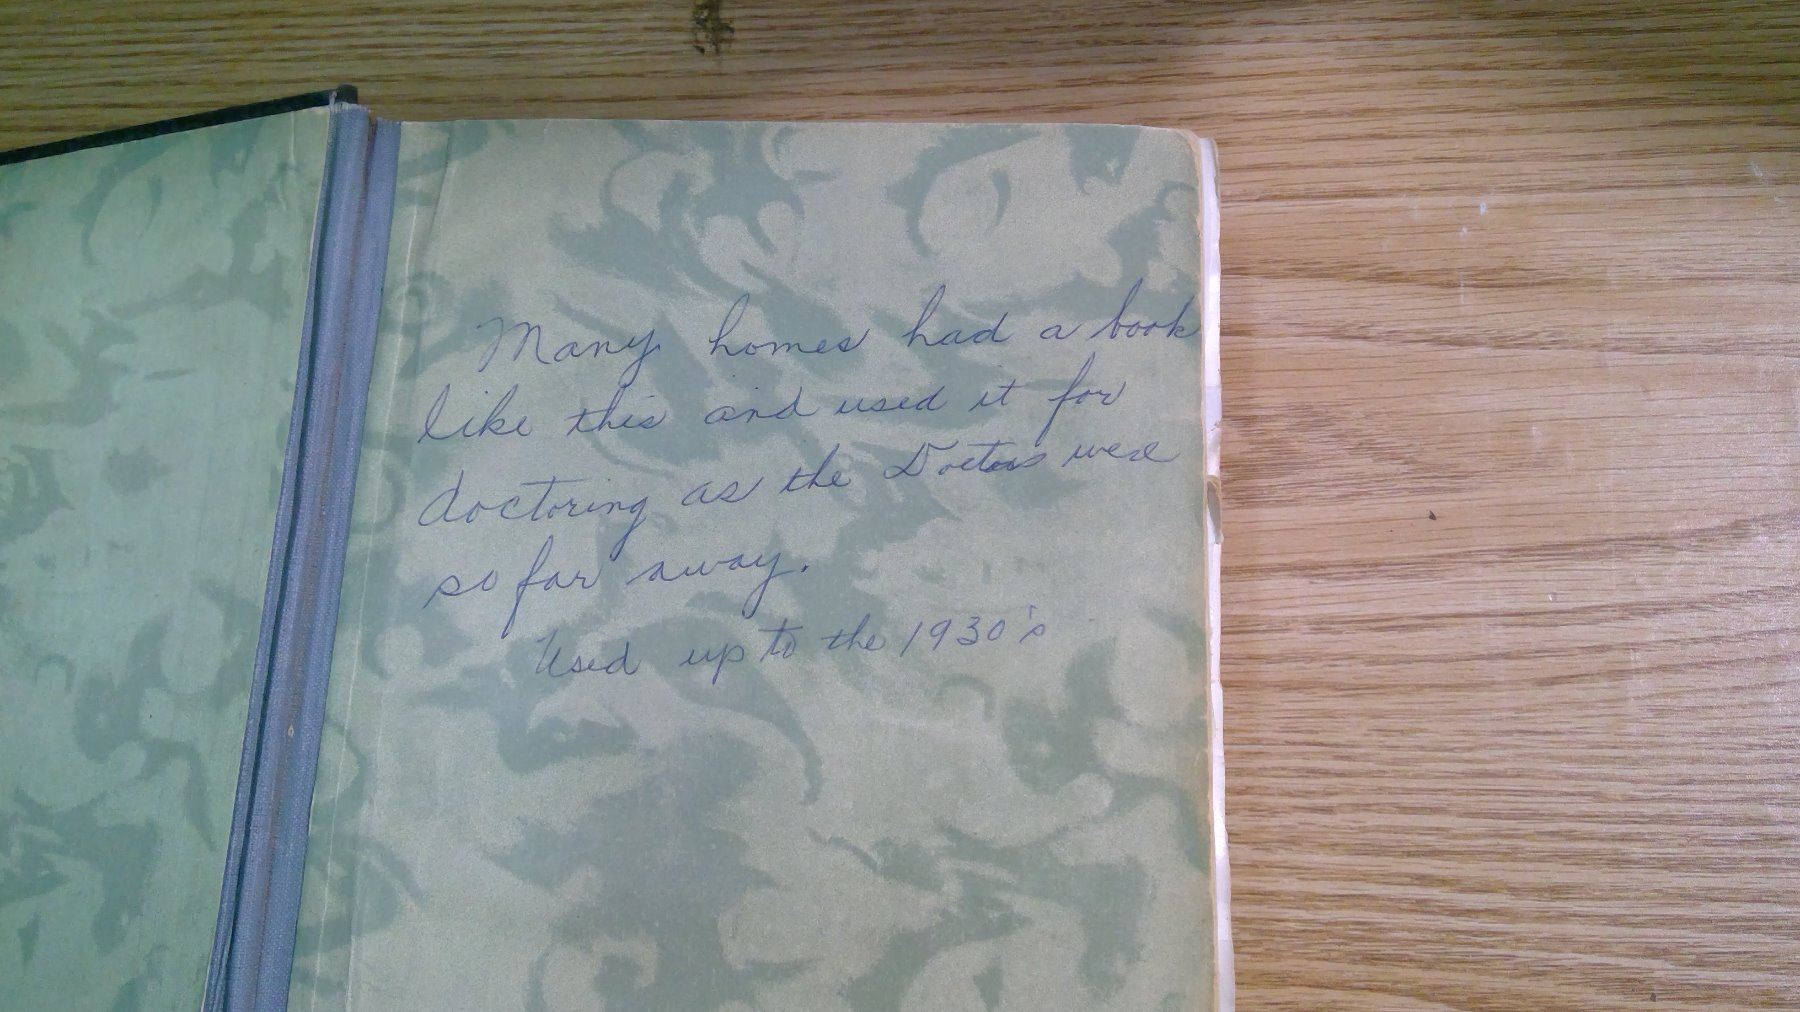 Many homes had a book
like this and used it for
doctoring as the Doctors were
so far away.
Used up to the 1930's